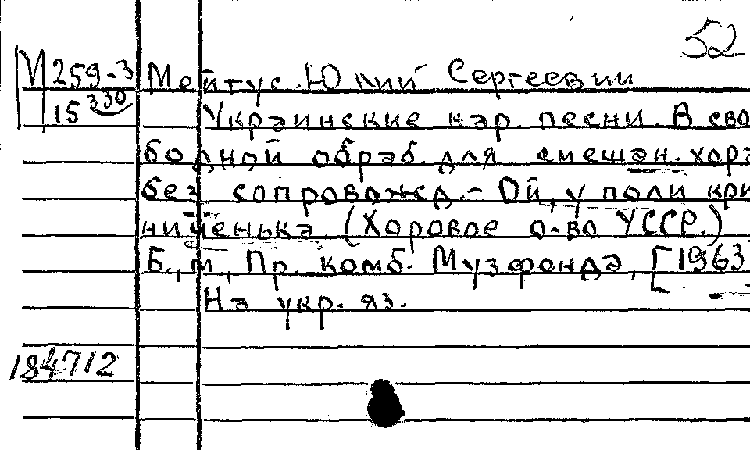 52
М 259-3 Мейтус Юлий Сергеевич
15 330 Украинские нар. песни. В сво
бодной обраб. для смешан. хора
без сопровожд. - Ой, у поли кри
ниченька. (Хоровое о-во УССР.)
Б. м., Пр. комб. Музфонда, [1963
На укр. яз.
184712